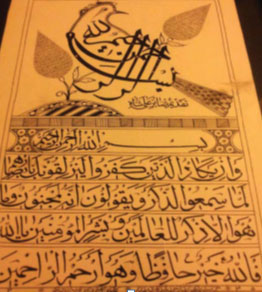 بسم الله الرحمن الرحيم
بسم الله الرحمن الرحيم
وان يكاد الذين كفروا ليزلقونك بابصارهم
لما سمعوا الذكر ويقولون انه لمجنون وما
هو الا ذكر للعالمين وبشر المؤمنين يا الله
فالله خير حافظا وهو ارحم الراحمين